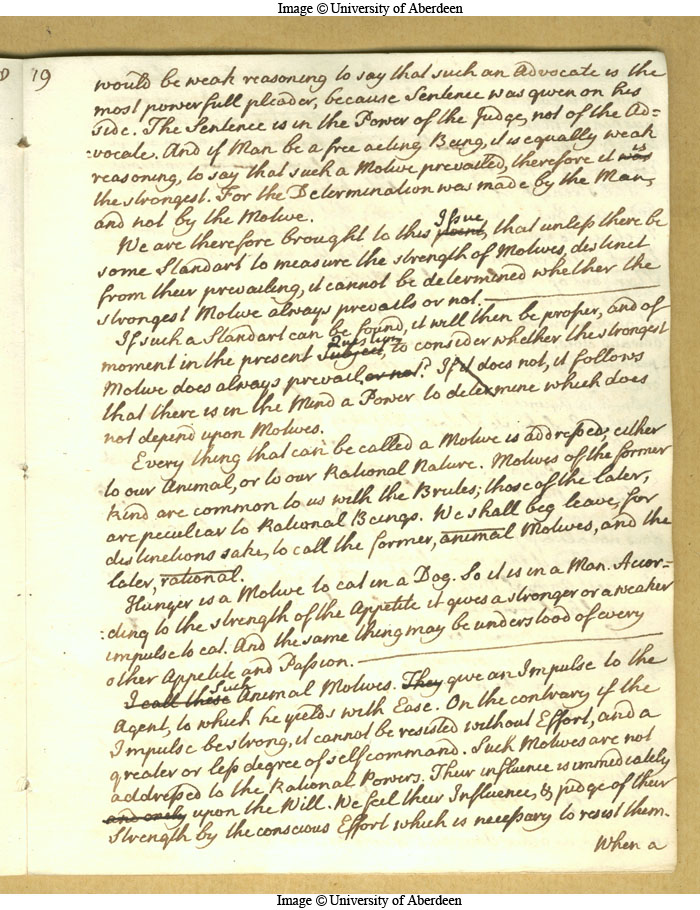 Image © University of Aberdeen
19
would be weak reasoning to say that such an Advocate is the
most powerfull pleader, because Sentence was given on his
side. The Sentence is in the Power of the Judge, not of the Ad=
=vocate. And if Man be a free acting Being, it is equally weak
reasoning, to say that such a Motive prevailed, therefore it was is
the strongest. For the Determination was made by the Man,
and not by the Motive.
We are therefore brought to this point, Issue, that unless there be
some Standart to measure the strength of Motives, distinct
from their prevailing, it cannot be determined whether the
strongest Motive always prevails or not.
If such a Standart can be found, it will then be proper, and of
moment in the present Subject, Question, to consider whether the strongest
Motive does always prevail, or not? If it does not, it follows
that there is in the Mind a Power to determine which does
not depend upon Motives.
Every thing that can be called a Motive is addressed, either
to our Animal, or to our Rational Nature. Motives of the former
kind are common to us with the Brutes; those of the later,
are peculiar to Rational Beings. We shall beg leave, for
distinctions sake, to call the former, animal Motives, and the
later, rational.
Hunger is a Motive to eat in a Dog. So it is in a Man. Accor=
=ding to the strength of the Appetite it gives a stronger or a weaker
impulse to eat. And the same thing may be understood of every
other Appetite and Passion.
I call these Such Animal Motives. They give an Impulse to the
Agent, to which he yields with Ease. On the contrary if the
Impulse be strong, it cannot be resisted without Effort, and a
greater or less degree of self command. Such Motives are not
addressed to the Rational Powers. Their influence is immediately
and only upon the Will. We feel their Influence, & judge of their
Strength by the conscious Effort which is necessary to resist them.
When a
Image © University of Aberdeen